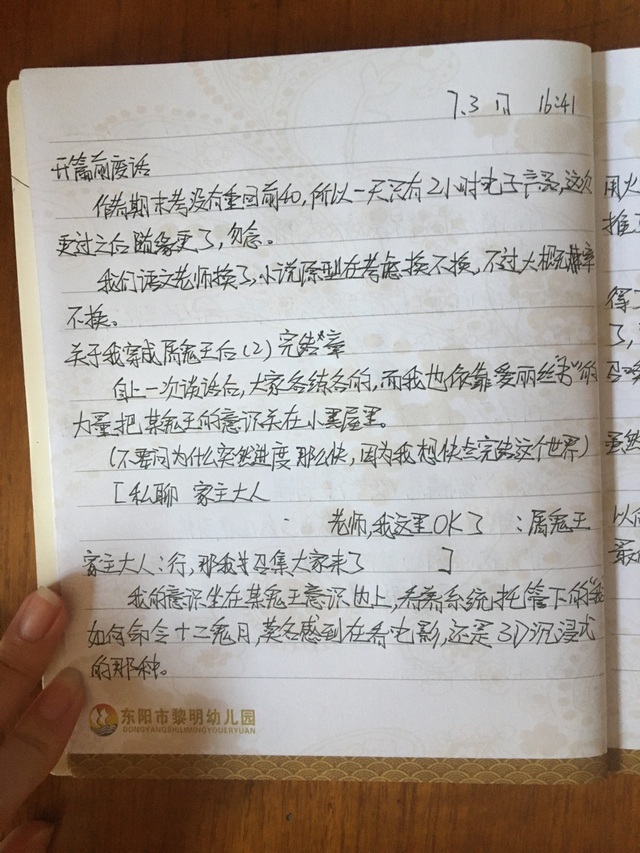 7.3 16:41
开篇前废话
作者期末考没有重回前40,所以一天只有2小时电子产品,这次
更过之后随缘更了,勿念。
我们语文老师换了,小说原型在考虑换不换,不过大概率
不换。
关于我穿成属鬼王后(2)完结章
自上一次谈话后,大家各练各的,而我也依靠爱丽丝"书"的
力量把某鬼王的意识关在小黑屋里。
(不要问为什么突然进度那么快,因为我想快点完结这个世界)
[私聊 家主大人
老师,我这里OK了 :属鬼王
家主大人:行,那我去召集大家来了 ]
我的意识坐在某鬼王意识边上,看着系统托管下的"我"
如何命令十二鬼月,莫名感到在看电影,还是3D沉浸式
的那种。
东阳市黎明幼儿园
DONGYANGSHILIMINGYOUERYUAN
用火
推
得
了,
召唤
虽然
以
最